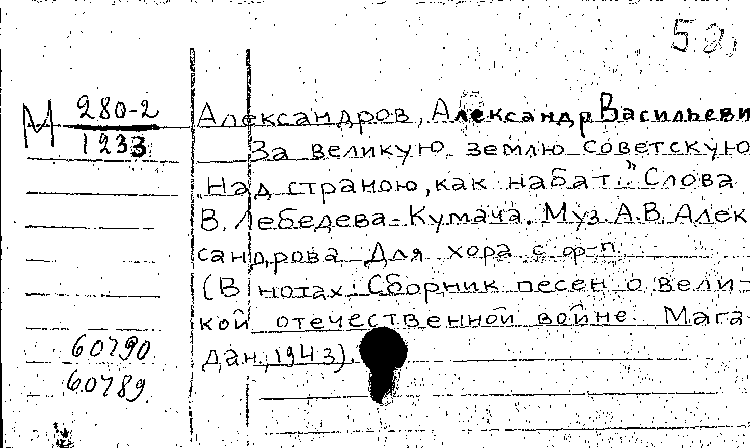 52.
М 280-2
1233
Александров, Александр Васильеви
За великую землю советскую
"Над страною, как набат.." Слова
В. Лебедева-Кумача. Муз. А.В. Алек
сандрова Для хора с ф-п.
(В нотах: Сборник песен о вели-
кой отечественной войне. Мага-
дан, 1943).
60790
60789.